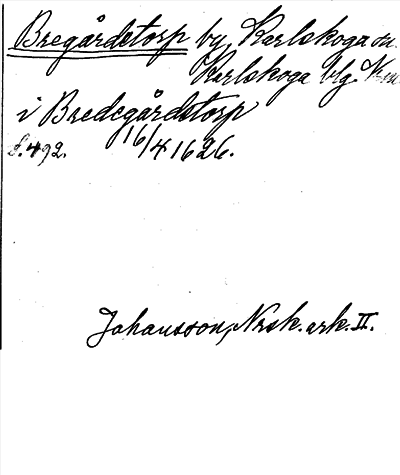 Bregårdstorp by, Karlskoga sn.
Karlskoga blg.
i Bredegårdstorp
s. 492. 16/4 1626.
Johansson, Noraskog. ark. II.